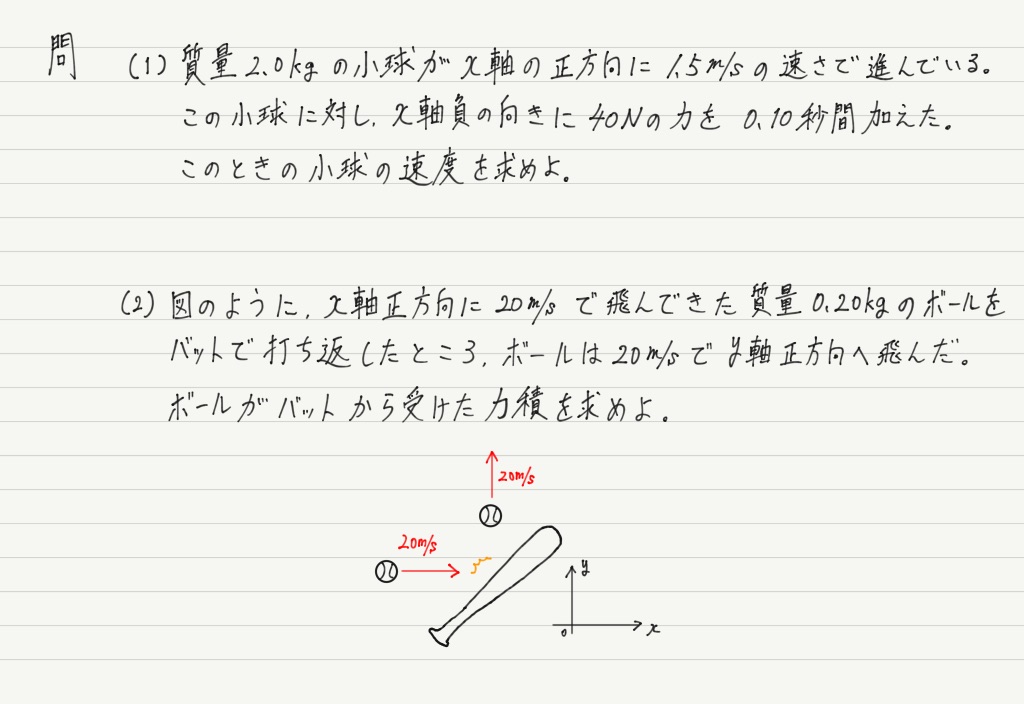 問 (1) 質量 2.0kg の小球が x軸の正方向に 1.5m/s の速さで進んでいる。
この小球に対し、x軸負の向きに 40Nの力を 0.10秒間加えた。
このときの小球の速度を求めよ。
(2) 図のように、x軸正方向に 20m/s で飛んできた質量 0.20kgのボールを
バットで打ち返したところ、ボールは 20m/sで y軸正方向へ飛んだ。
ボールがバットから受けた力積を求めよ。
20m/s
20m/s
y
0 x